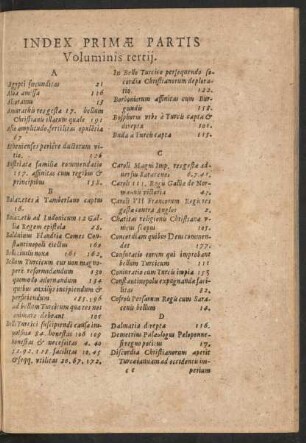 INDEX PRIMÆ PARTIS
Voluminis tertij.
A
Ægypti fœcunditas 21
Alba amissa 116
Alcoranum 13
Amurathis res gesta 17. bellum
Christianis illatum quale 191
Asia amplitudo, fertilitas opulẽtia
67
Athenienses periere dulterum vi-
tio.
Austriaca familia commendatio
117. affinitas cum regibus &
principibus 138.
B
Baiazetes à Tamberlano captus
16.
Baiazetis ad Ludouicum 12 Gal-
liæ Regem epistola 28.
Balduinus Flandriæ Comes Con-
stantinopoli eiectus 162
162
Bellum Turcicum cur non magno-
pere reformidandum 130
quomodo administrandum 134
quibus auxilijs incipiendum &
persequendum 185. 196
ad bellum Turcicum qua res nos
animare debeant 101
Belli Turcici suscipiendi causa im-
pulsiuæ 84. honestas 168 107
honestas & necessitas 4. 40
52. 92. 121. facilitas 10. 45
& seqq. vtilitas 20. 67. 172.
In Bello Turcico persequendo so-
cordia Christianorum deplora-
tio 122.
Borbonicorum affinitas cum Bur-
gundis 118.
Bosphorus vrbs à Turcis capta &
direpta 101.
Buda à Turcis capta 115.
C
Caroli Magni Imp. res gesta ad-
uersus Saracenos 6.7.41.
Caroli III, Regis Galliæ de Nor-
mannis victoria 43.
Caroli VII Francorum Regis res
gesta contra Anglos 2.
Charitas religionis Christianæ v-
nicus scopus 185.
Concordiam quibus Deus concor-
det 177.
Confutatio eorum qui improbant
bellum Turcicum 111
Coniuratio cum Turcis impia 135
Constantinopolis expugnanda faci-
litas 22.
Cosrois Persarum Regis cum Sara-
cenis bellum 20.
D
Dalmatia direpta 116.
Demetrius Palæologus Peloponne-
si regno potitus 17.
Discordia Christianorum aperit
Turcis viam ad occidentis im-
c c perium